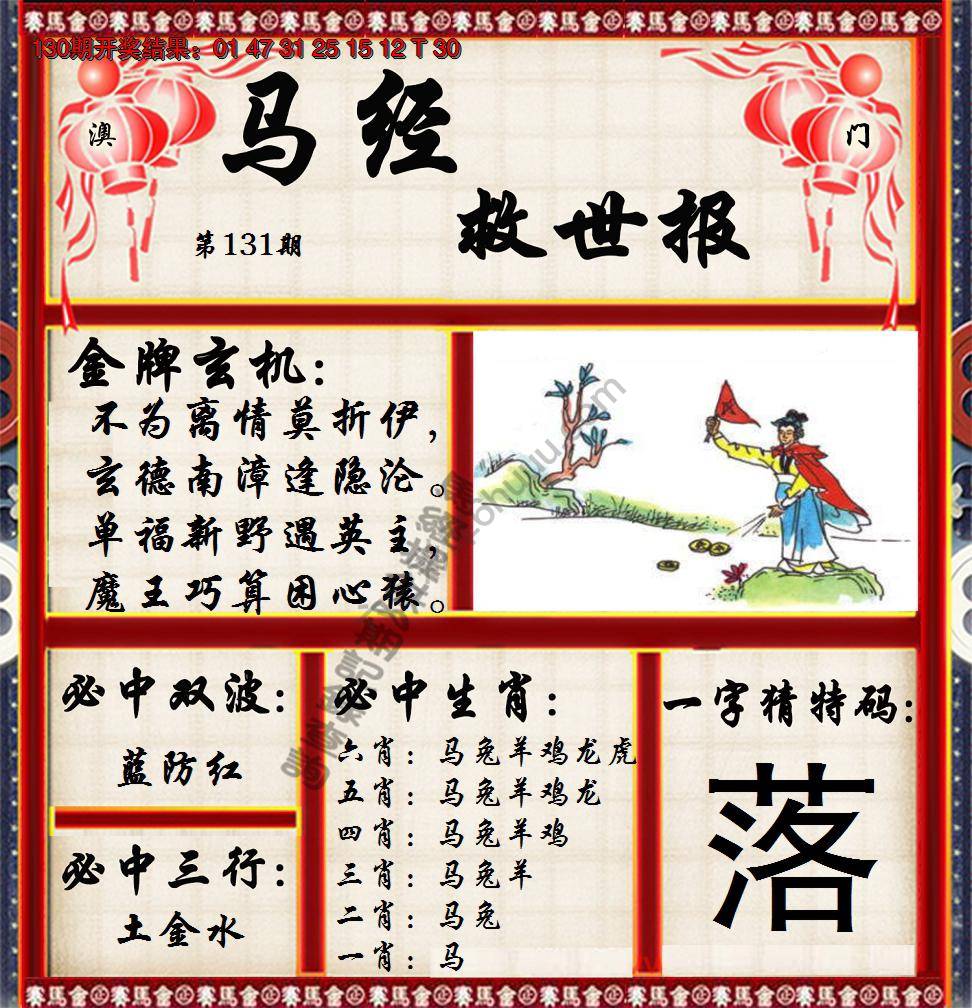 130期开奖结果：01 47 31 25 15 12 T 30
澳
门
马经
救世报
第131期
金牌玄机：
不为离情莫折伊，
玄德南漳逢隐沦。
单福新野遇英主，
魔王巧算困心猿。
必中双波：
蓝防红
必中三行：
土金水
必中生肖：
六肖：马兔羊鸡龙虎
五肖：马兔羊鸡龙
四肖：马兔羊鸡
三肖：马兔羊
二肖：马兔
一肖：马
一字猜特码：
落